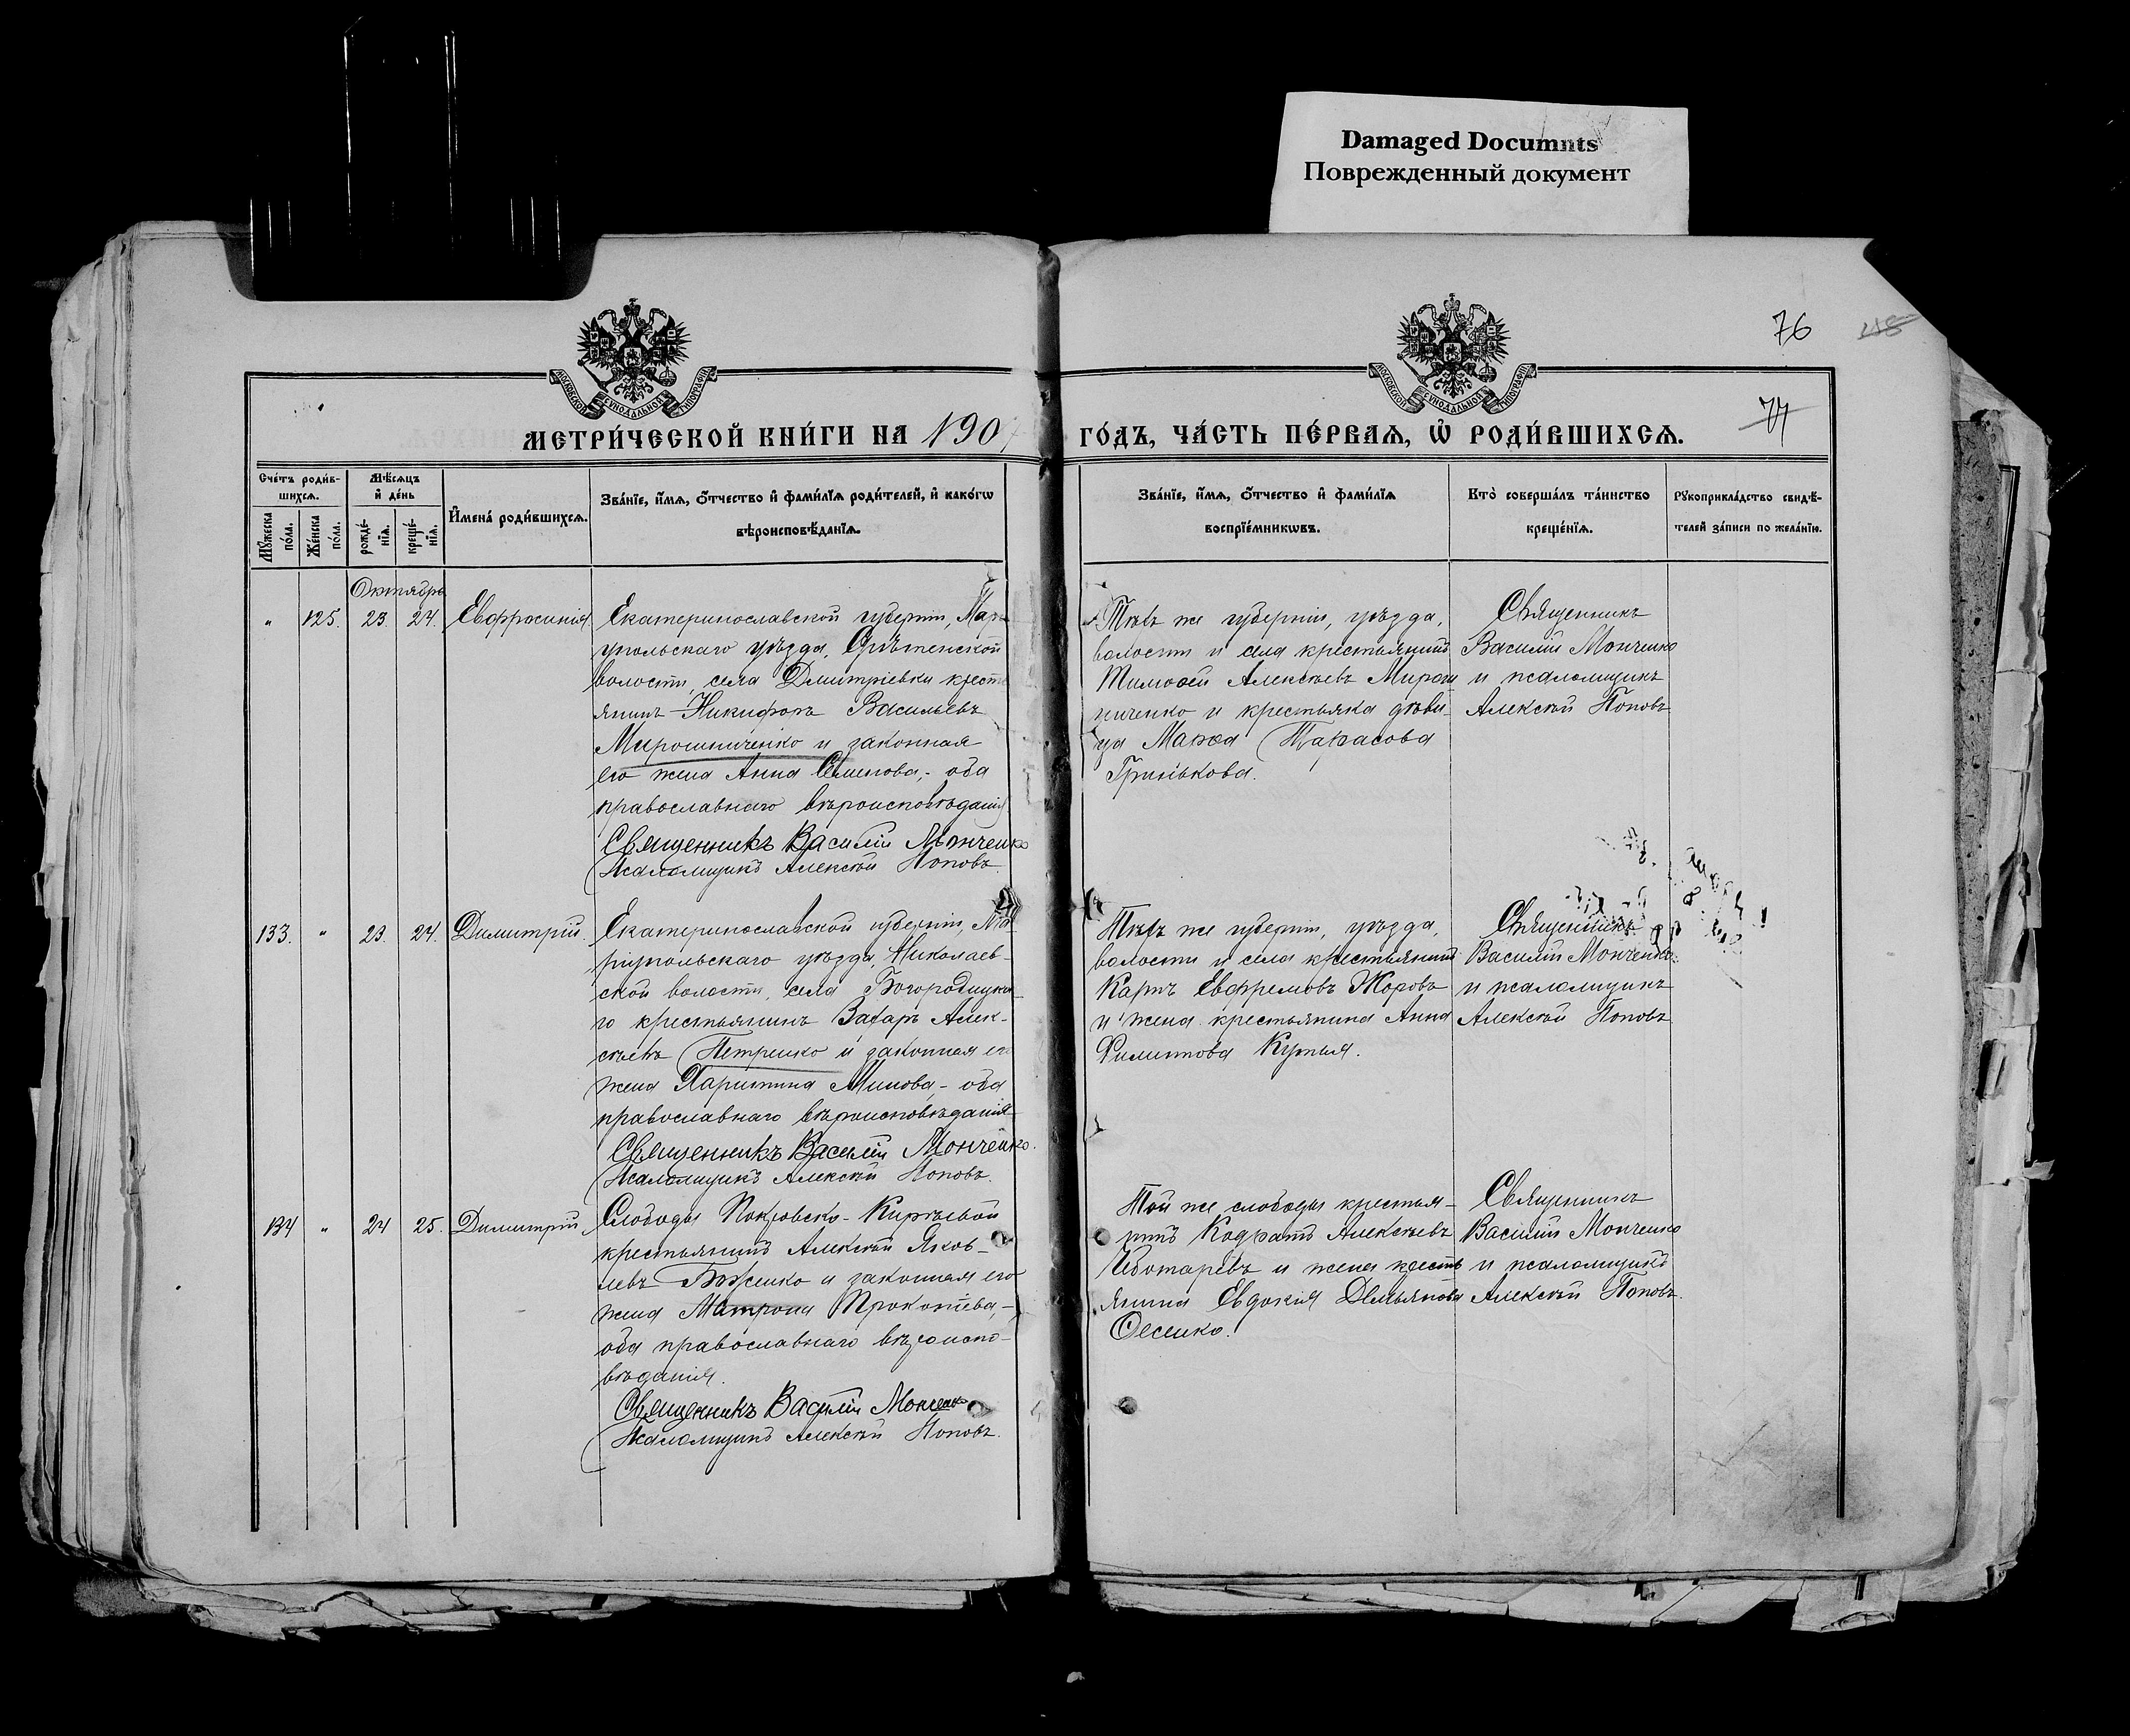 Damaged Documnts
Поврежденный документ
76
418
77
МОСКОВСКОЙ СѴНОДАЛЬНОЙ ТИПОГРАФІИ
МОСКОВСКОЙ СѴНОДАЛЬНОЙ ТИПОГРАФІИ
МЕТРИ́ЧЕСКОЙ КНИ́ГИ НА 1907
ГО́ДЪ, ЧА́СТЬ ПЕ́РВАѦ, Ѡ҆ РОДИ́ВШИХСѦ.
Сче́тъ роди́в-
шихсѧ.
Мꙋ́жеска по́ла.
Же́нска по́ла.
Мѣ́сѧцъ
и҆ де́нь
рожде́-
нїѧ.
креще́-
нїѧ.
И҆мена̀ роди́вшихсѧ.
Зва́нїе, и҆́мѧ, о҆́тчество и҆ фами́лїѧ роди́телей, и҆ како́гѡ
вѣроисповѣ́данїѧ.
Зва́нїе, и҆́мѧ, о҆́тчество и҆ фами́лїѧ
воспрїе́мникѡвъ.
Кто̀ соверша́лъ та́инство
креще́нїѧ.
Рꙋкоприкла́дство свидѣ́-
телей за́писи по жела́нїю.
Октябрь
" 125. 23. 24. Евфросинія
Екатеринославской губерніи, Мари
упольскаго уѣзда, Срѣтенской
волости, села Дмитріевки кресть
янинъ Никифоръ Васильевъ
Мирошниченко и законная
его жена Анна Семенова,- оба
православнаго вѣроисповѣданія
Священникъ Василій Монченко
Псаломщикъ Алексѣй Поповъ.
Тѣхъ же губерніи, уѣзда,
волости и села крестьянинъ
Тимоѳей Алексѣевъ Мирош
ниченко и крестьянка дѣви-
ца Марѳа Тарасова
Гринькова.
Священникъ
Василій Мончено
и псаломщикъ
Алексѣй Поповъ
133. " 23. 24. Димитрій.
Екатеринославской губерніи, Ма
ріупольскаго уѣзда, Николаев-
ской волости, села Богородицка
го крестьянинъ Захаръ Алек-
сѣевъ Петренко и законная его
жена Харитина Минова,- оба
православнаго вѣроисповѣданія
Священникъ Василій Мончено.
Псаломщикъ Алексѣй Поповъ.
Тѣхъ же губерніи, уѣзда,
волости и села крестьянинъ
Карпъ Евфремовъ Жоровъ
и жена крестьянина Анна
Филиппова Кутья.
Священникъ
Василій Мончено
и псаломщикъ
Алексѣй Поповъ
134 " 24 25. Димитрій
Слободы Покровско-Кирѣевой
крестьянинъ Алексѣй Яков-
левъ Боженко и законная его
жена Матрона Прокопіева,-
оба православнаго вѣроиспо-
вѣданія.
Священникъ Василій Мончено
Псаломщикъ Алексѣй Поповъ.
Той же слободы крестья-
нинъ Кодратъ Алексѣевъ
Чеботаревъ и жена кресть
янина Евдокія Демьянова
Овсенко.
Священникъ
Василій Мончено
и псаломщикъ
Алексѣй Поповъ.